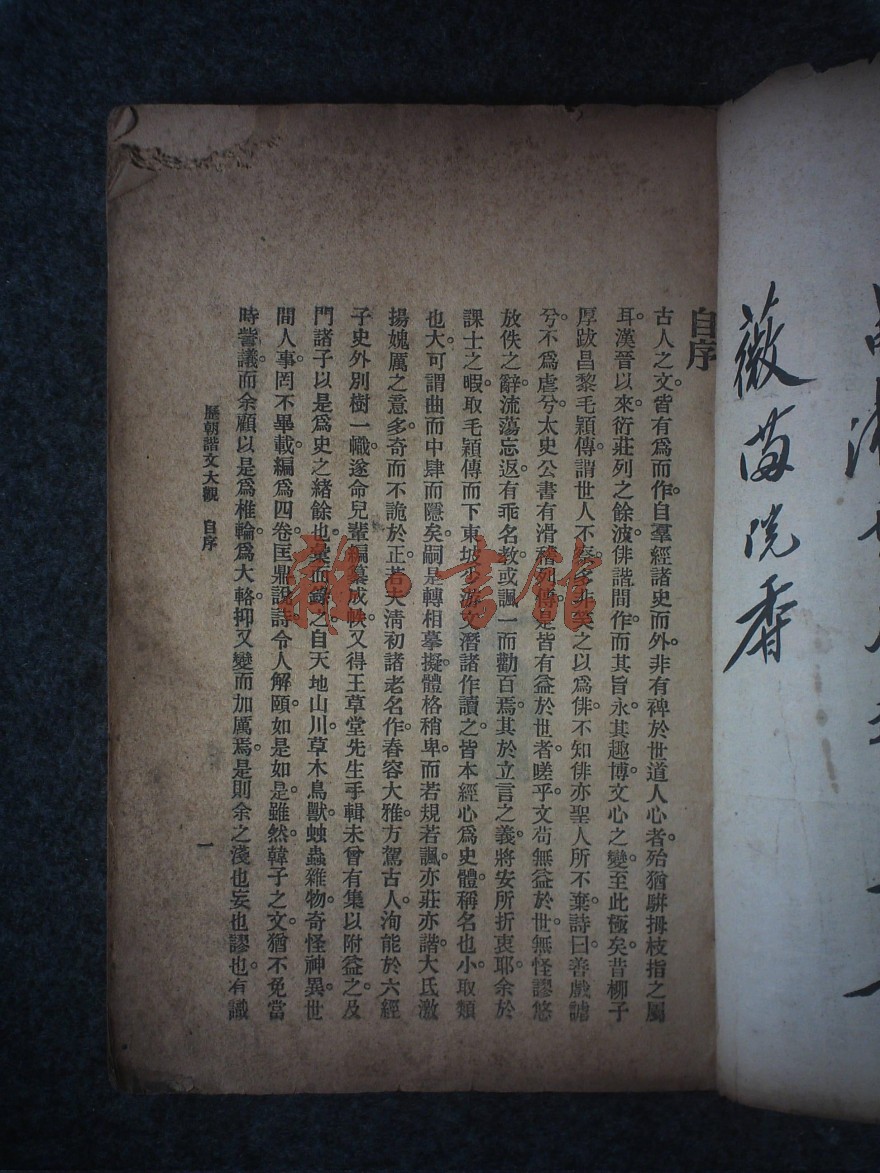 薇苺浣香
自序
古人之文。皆有爲而作。自羣經諸史而外。非有裨於世道人心者。殆猶駢拇枝指之屬
耳。漢晉以來。衍莊列之餘波。俳諧間作。而其旨永。其趣博。文心之變。至此極矣。昔柳子
厚跋昌黎毛穎傳。謂世人不 多非笑之以爲俳。不知俳亦聖人所不棄。詩曰。善戲謔
兮。不爲虐兮。太史公書有滑稽列傳。是皆有益於世者。嗟乎。文苟無益於世。無怪謬悠
放佚之辭。流蕩忘返。有乖名教。或諷一而勸百焉。其於立言之義。將安所折衷耶。余於
課士之暇。取毛穎傳而下。東坡少游文潛諸作讀之。皆本經心爲史體。稱名也小。取類
也大。可謂曲而中肆而隱矣。嗣是轉相摹擬。體格稍卑。而若規若諷。亦莊亦諧。大氏激
揚媿厲之意多。奇而不詭於正。若夫清初諸老名作。春容大雅。方駕古人。洵能於六經
子史外別樹一幟。遂命兒輩編纂成帙。又得王草堂先生手輯未曾有集以附益之。及
門諸子以是爲史之緒餘也。彙而錄之。自天地山川。草木鳥獸。蚰蟲雜物。奇怪神異。世
間人事。罔不畢載。編爲四卷。匡鼎說詩。令人解頤。如是如是。雖然。韓子之文。猶不免當
時訾議。而余顧以是爲椎輪。爲大輅。抑又變而加厲焉。是則余之淺也妄也謬也。有識
歷朝諧文大觀 自序
一
雜·書館